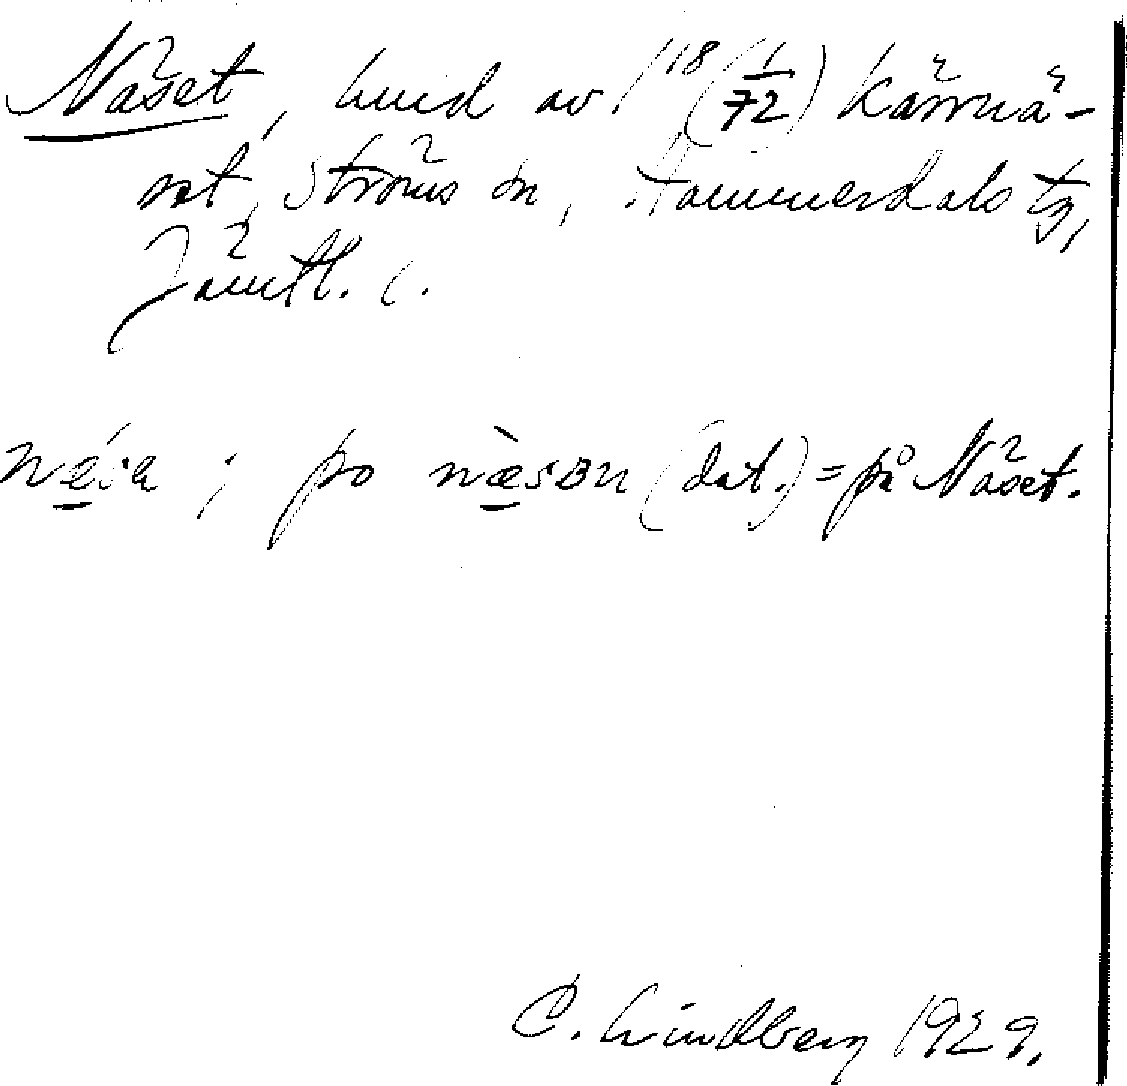 Näset, hmd av 1¹⁸ (1/72) Kärrnä-
set, Ströms sn, Hammerdals tg,
Jämtl. l.
nǽ̱sa ; po næ̱̀sɜn (dat.) = på Näset.
C. Lindberg 1929.